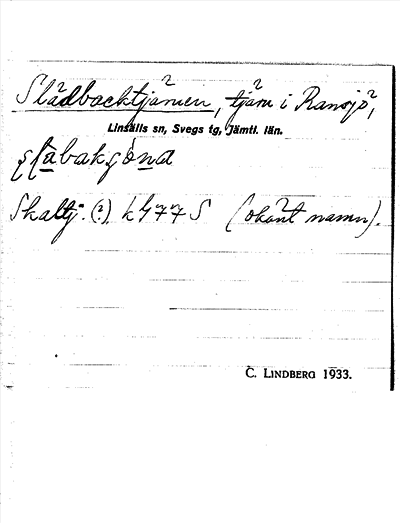 Slädbacktjärnen, tjärn i Ransjö,
Linsälls sn, Svegs tg, Jämtl. län.
Skaltj. (?) k477 S (okänt namn).
C. LINDBERG 1933.